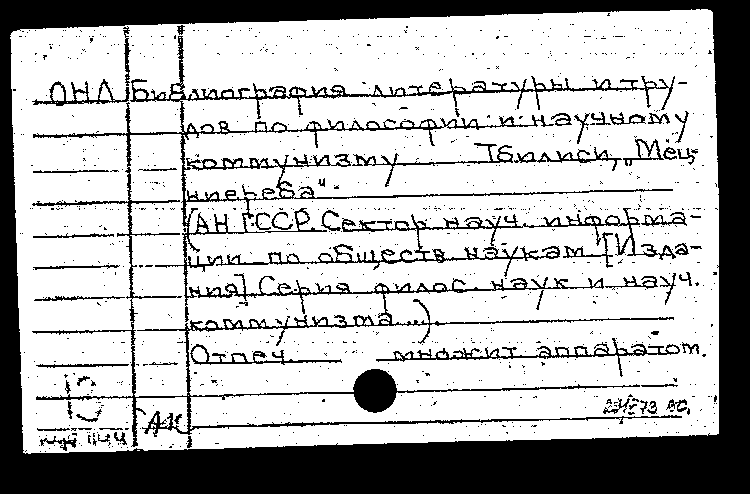 ОНЛ Библиография литературы и тру-
дов по философии и научному
коммунизму Тбилиси, „Мец-
ниереба".
(АН ГССР. Сектор науч. информа-
ции по обществ. наукам [Изда-
ния] Серия филос. наук и науч.
коммунизма...).
Отпеч. множит. аппаратом.
13
АК